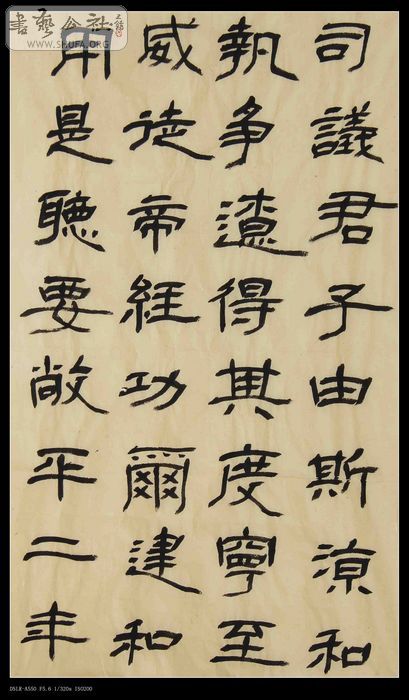 書藝公社
WWW.SHUFA.ORG
司議君子由斯涼和
執争遼得其度寧至
威徒帝經功爾建和
用是聽要敞平二年
DSLR-A550 F5.6 1/320s ISO200